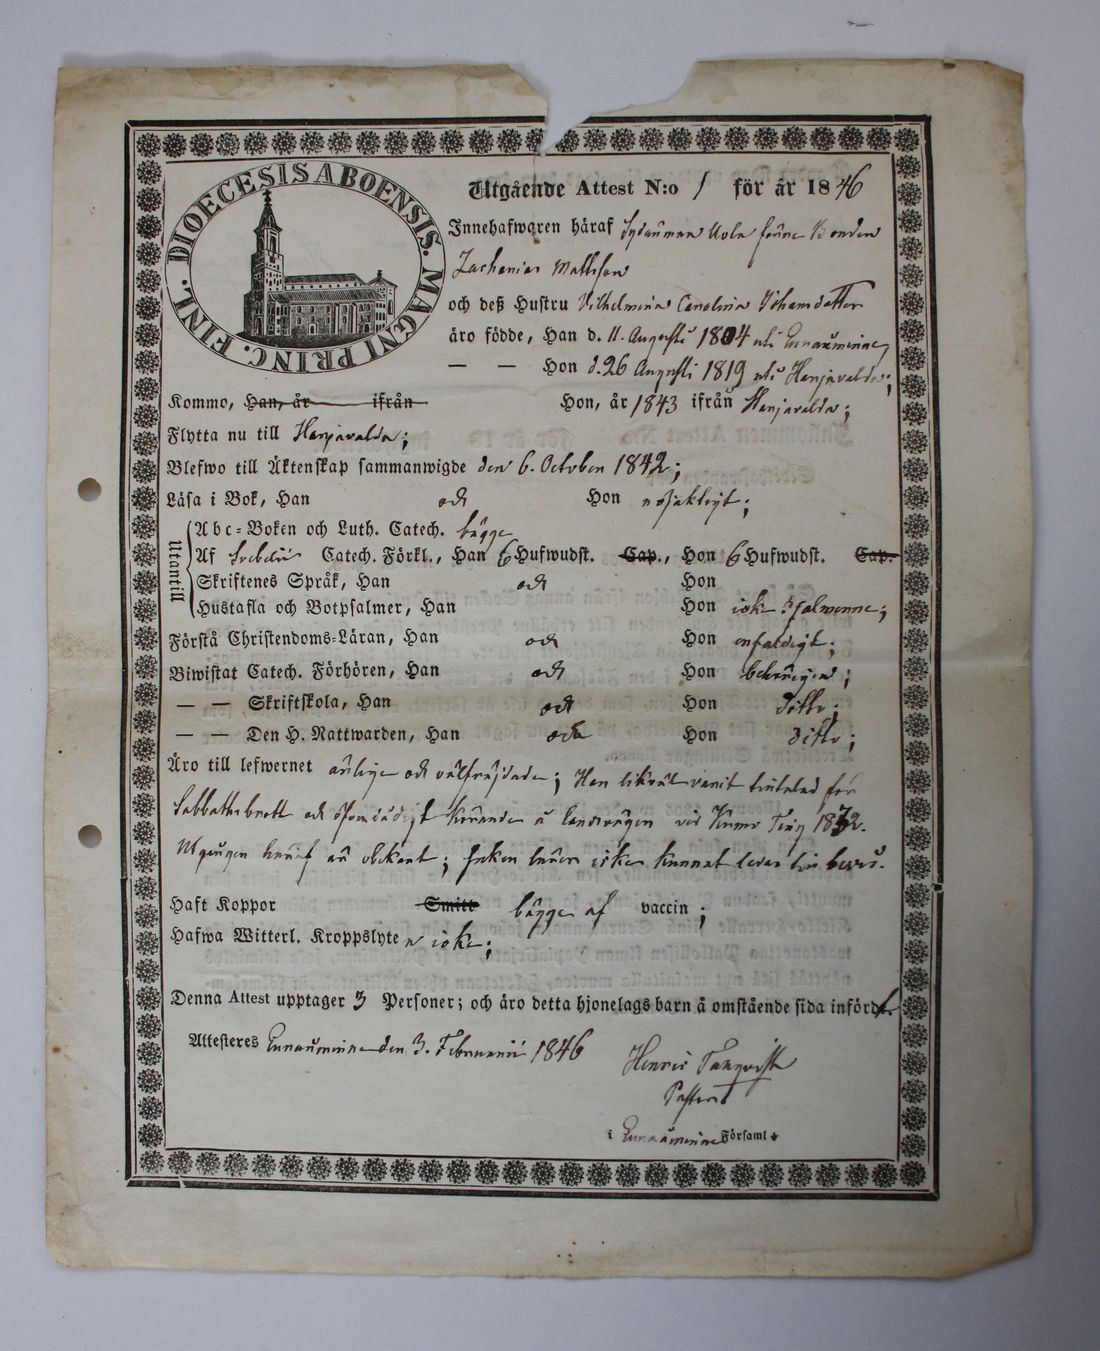 DIOECESIS ABOENSIS. MAGNI PRINC. FINL.
Utgående Attest N:o 1 för år 1846
Innehafwaren häraf
Zacharias Mattsson
och deß Hustru Vilhelmina Carolina Johansdotter
äro födde, Han d. 11. Augusti 1804 uti
— — Hon d. 26 Augusti 1819 uti Harjavalda;
Kommo, Han, år ifrån Hon, år 1843 ifrån Harjavalda;
Flytta nu till Harjavalda;
Blefwo till Äktenskap sammanwigde den 6. October 1842;
Läsa i Bok, Han och Hon
Utantill
Abc-Boken och Luth. Catech. bägge
Af Svebelii Catech. Förkl., Han 6 Hufwudst. Cap., Hon 6 Hufwudst. Cap.
Skriftenes Språk, Han och Hon
Hustafla och Botpsalmer, Han Hon icke Psalmerne;
Förstå Christendoms-Läran, Han och Hon enfaldigt;
Biwistat Catech. Förhören, Han och Hon behörigen;
— — Skriftskola, Han och Hon ditto;
— — Den H. Nattwarden, Han och Hon ditto;
Äro till lefwernet ärlige och välfräjdade; Han likväl varit tilltalad för
Sabbathsbrott och körande å landsvägen vid Kumo Ting 18
Utgången häraf är obekant;
Haft Koppor Smitt bägge af vaccin;
Hafwa Witterl. Kroppslyte icke;
Denna Attest upptager 3 Personer; och äro detta hjonelags barn å omstående sida införd
Attesteres den 3. Februarii 1846
Henric
Pastor
i Församl